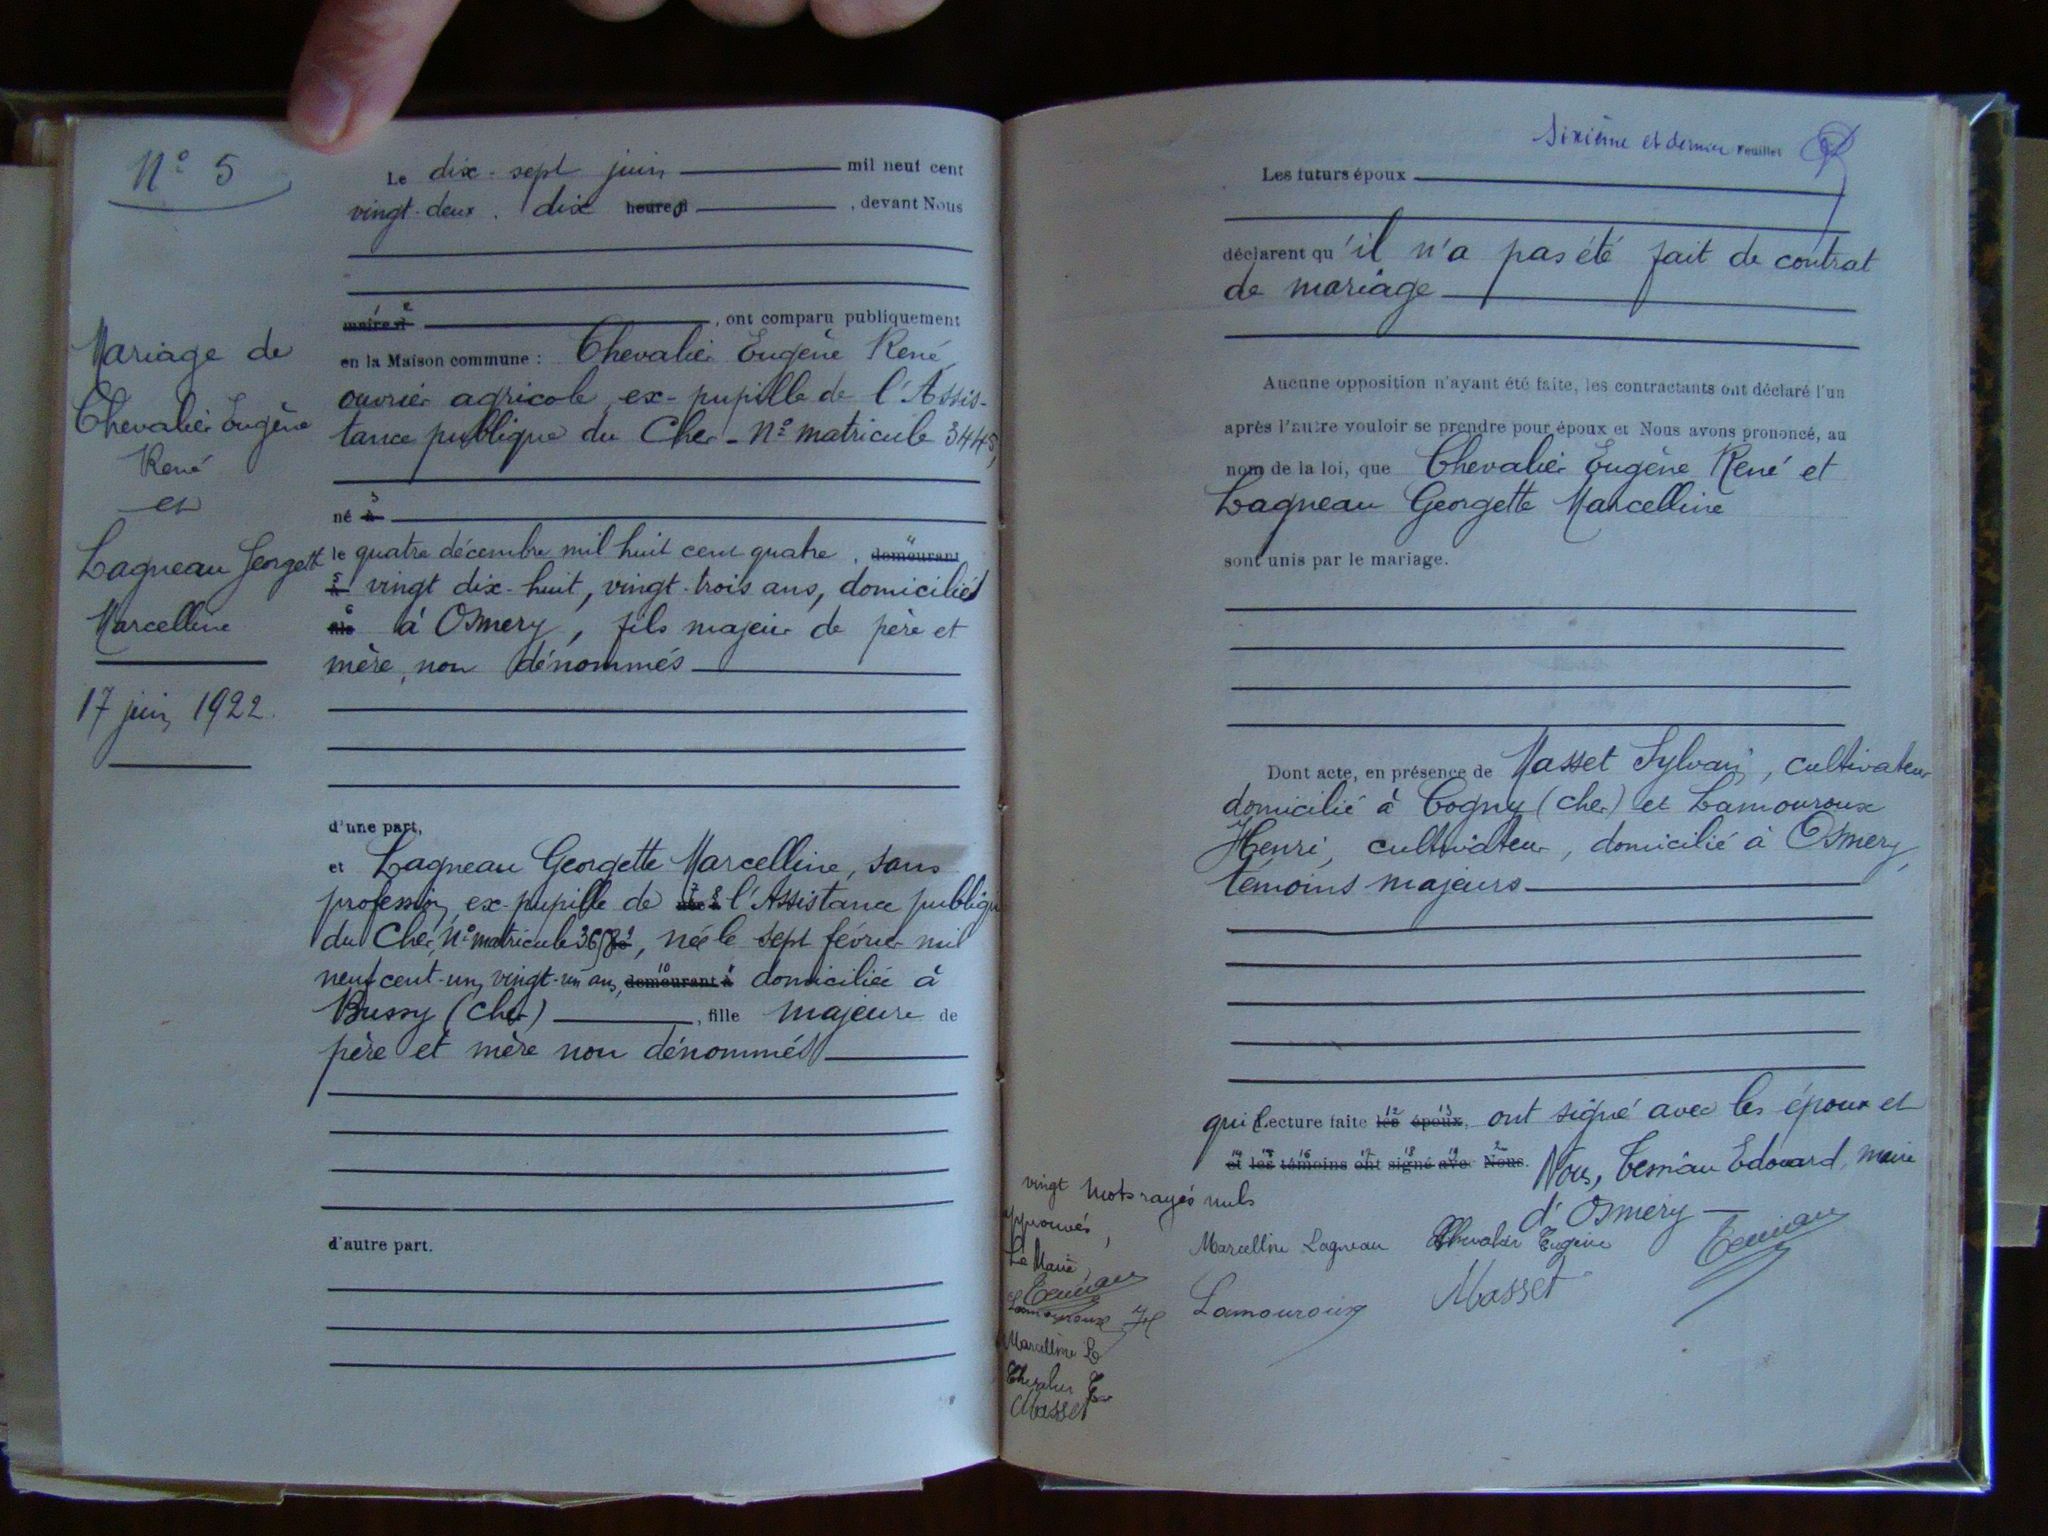 N° 5
Mariage de
Chevalier Eugène
René
et
Lagneau Georgette
Marcelline
17 juin 1922.
Le dix-sept juin mil neuf cent
vingt-deux. dix heures , devant Nous
maire , ont comparu publiquement
en la Maison commune : Chevalier Eugène René,
ouvrier agricole, ex-pupille de l'Assis-
tance publique du Cher - N° matricule 3445,
né à
le quatre décembre mil huit cent quatre , demeurant
à vingt dix-huit, vingt-trois ans, domicilié
fils à Osmery, fils majeur de père et
mère, non dénommés
d'une part,
et Lagneau Georgette Marcelline, sans
profession, ex-pupille de l'Assistance publique
du Cher, N° matricule , née le sept février mil
neuf cent-un, vingt-un ans, demeurant à domiciliée à
Bussy (Cher) , fille majeure de
père et mère non dénommés
d'autre part.
Sixième et dernier Feuillet
Les futurs époux
déclarent qu'il n'a pas été fait de contrat
de mariage
Aucune opposition n'ayant été faite, les contractants ont déclaré l'un
après l'autre vouloir se prendre pour époux et Nous avons prononcé, au
nom de la loi, que Chevalier Eugène René et
Lagneau Georgette Marcelline
sont unis par le mariage.
Dont acte, en présence de Masset Sylvain, cultivateur
domicilié à Cogny (Cher) et Lamouroux
Henri, cultivateur, domicilié à Osmery,
témoins majeurs
qui Lecture faite les époux, ont signé avec les époux et
et les témoins ont signé avec Nous. Nous, Edouard, maire
d'Osmery
vingt mots rayés nuls
approuvés,
Le Maire
Lamouroux H
Marcelline L
Chevalier E
Masset
Marcelline Lagneau Chevalier Eugène
Lamouroux Masset